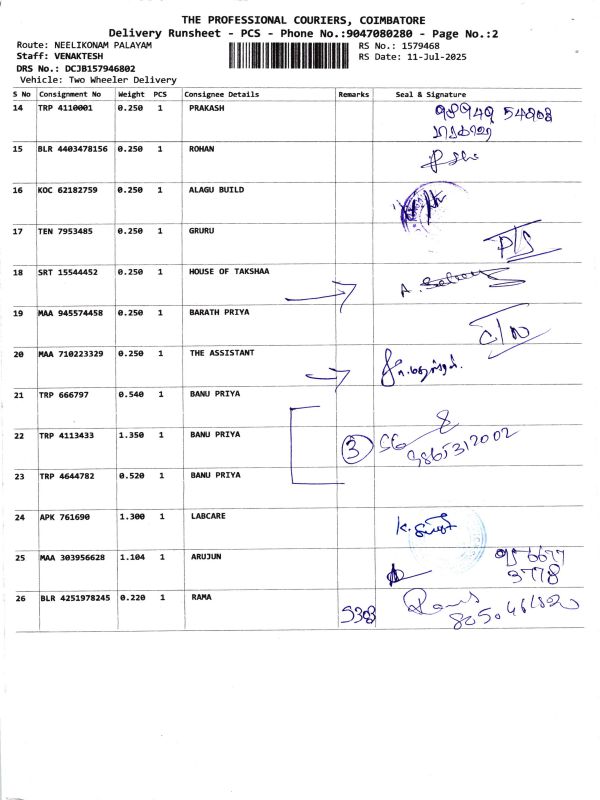 THE PROFESSIONAL COURIERS, COIMBATORE
Delivery Runsheet - PCS - Phone No.:9047080280 - Page No.:2
Route: NEELIKONAM PALAYAM RS No.: 1579468
Staff: VENAKTESH RS Date: 11-Jul-2025
DRS No.: DCJB157946802
Vehicle: Two Wheeler Delivery
S No Consignment No Weight PCS Consignee Details Remarks Seal & Signature
14 TRP 4110001 0.250 1 PRAKASH
15 BLR 4403478156 0.250 1 ROHAN
16 KOC 62182759 0.250 1 ALAGU BUILD
17 TEN 7953485 0.250 1 GRURU P/S
18 SRT 15544452 0.250 1 HOUSE OF TAKSHAA
19 MAA 945574458 0.250 1 BARATH PRIYA
20 MAA 710223329 0.250 1 THE ASSISTANT
21 TRP 666797 0.540 1 BANU PRIYA
22 TRP 4113433 1.350 1 BANU PRIYA 3
23 TRP 4644782 0.520 1 BANU PRIYA
24 APK 761690 1.300 1 LABCARE
25 MAA 303956628 1.104 1 ARUJUN
3778
26 BLR 4251978245 0.220 1 RAMA